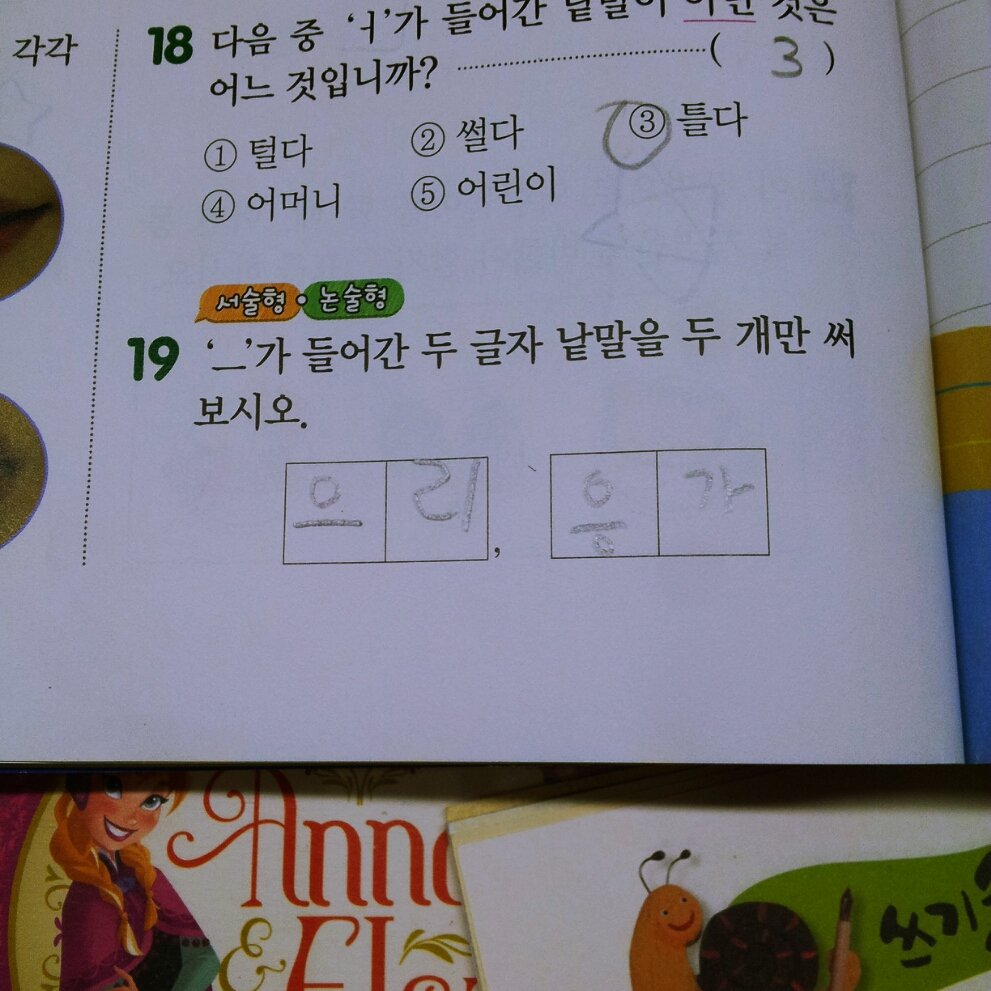 각각
18 다음 중 'ㅓ'가 들어간 낱말이 아닌 것은
어느 것입니까? ( 3 )
① 털다 ② 썰다 ③ 틀다
④ 어머니 ⑤ 어린이
서술형·논술형
19 'ㅡ'가 들어간 두 글자 낱말을 두 개만 써
보시오.
으리, 응가
Anna
&
쓰기